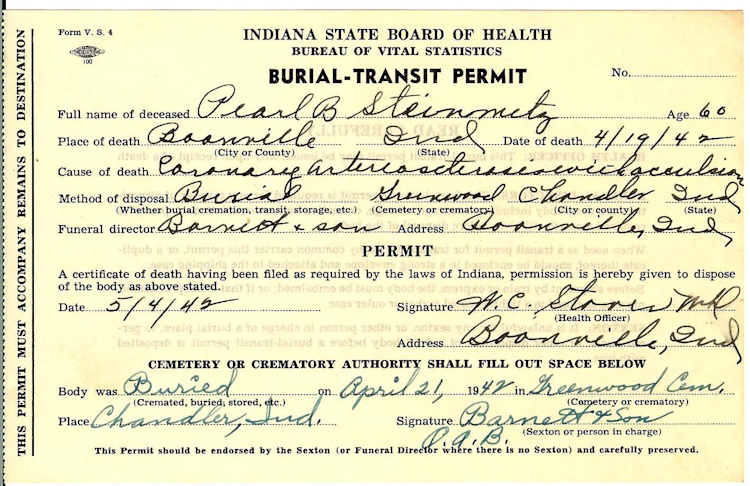 Form V. S. 4
100
INDIANA STATE BOARD OF HEALTH
BUREAU OF VITAL STATISTICS
BURIAL-TRANSIT PERMIT
No.
Full name of deceased Pearl B Steinmetz Age 60
Place of death Boonville Ind Date of death 4/19/42
(City or County) (State)
Cause of death Coronary arteriosclerosis with occulsion
Method of disposal Burial Greenwood Chandler Ind
(Whether burial cremation, transit, storage, etc.) (Cemetery or crematory) (City or county) (State)
Funeral director Barnett + son Address Boonville, Ind
PERMIT
A certificate of death having been filed as required by the laws of Indiana, permission is hereby given to dispose
of the body as above stated.
Date 5/4/42 Signature W. C. Stover MD
(Health Officer)
Address Boonville, Ind
CEMETERY OR CREMATORY AUTHORITY SHALL FILL OUT SPACE BELOW
Body was Buried on April 21, 1942 in Greenwood Cem.
(Cremated, buried, stored, etc.) (Cemetery or crematory)
Place Chandler, Ind. Signature Barnett & Son
(Sexton or person in charge)
O.A.B.
This Permit should be endorsed by the Sexton (or Funeral Director where there is no Sexton) and carefully preserved.
THIS PERMIT MUST ACCOMPANY REMAINS TO DESTINATION